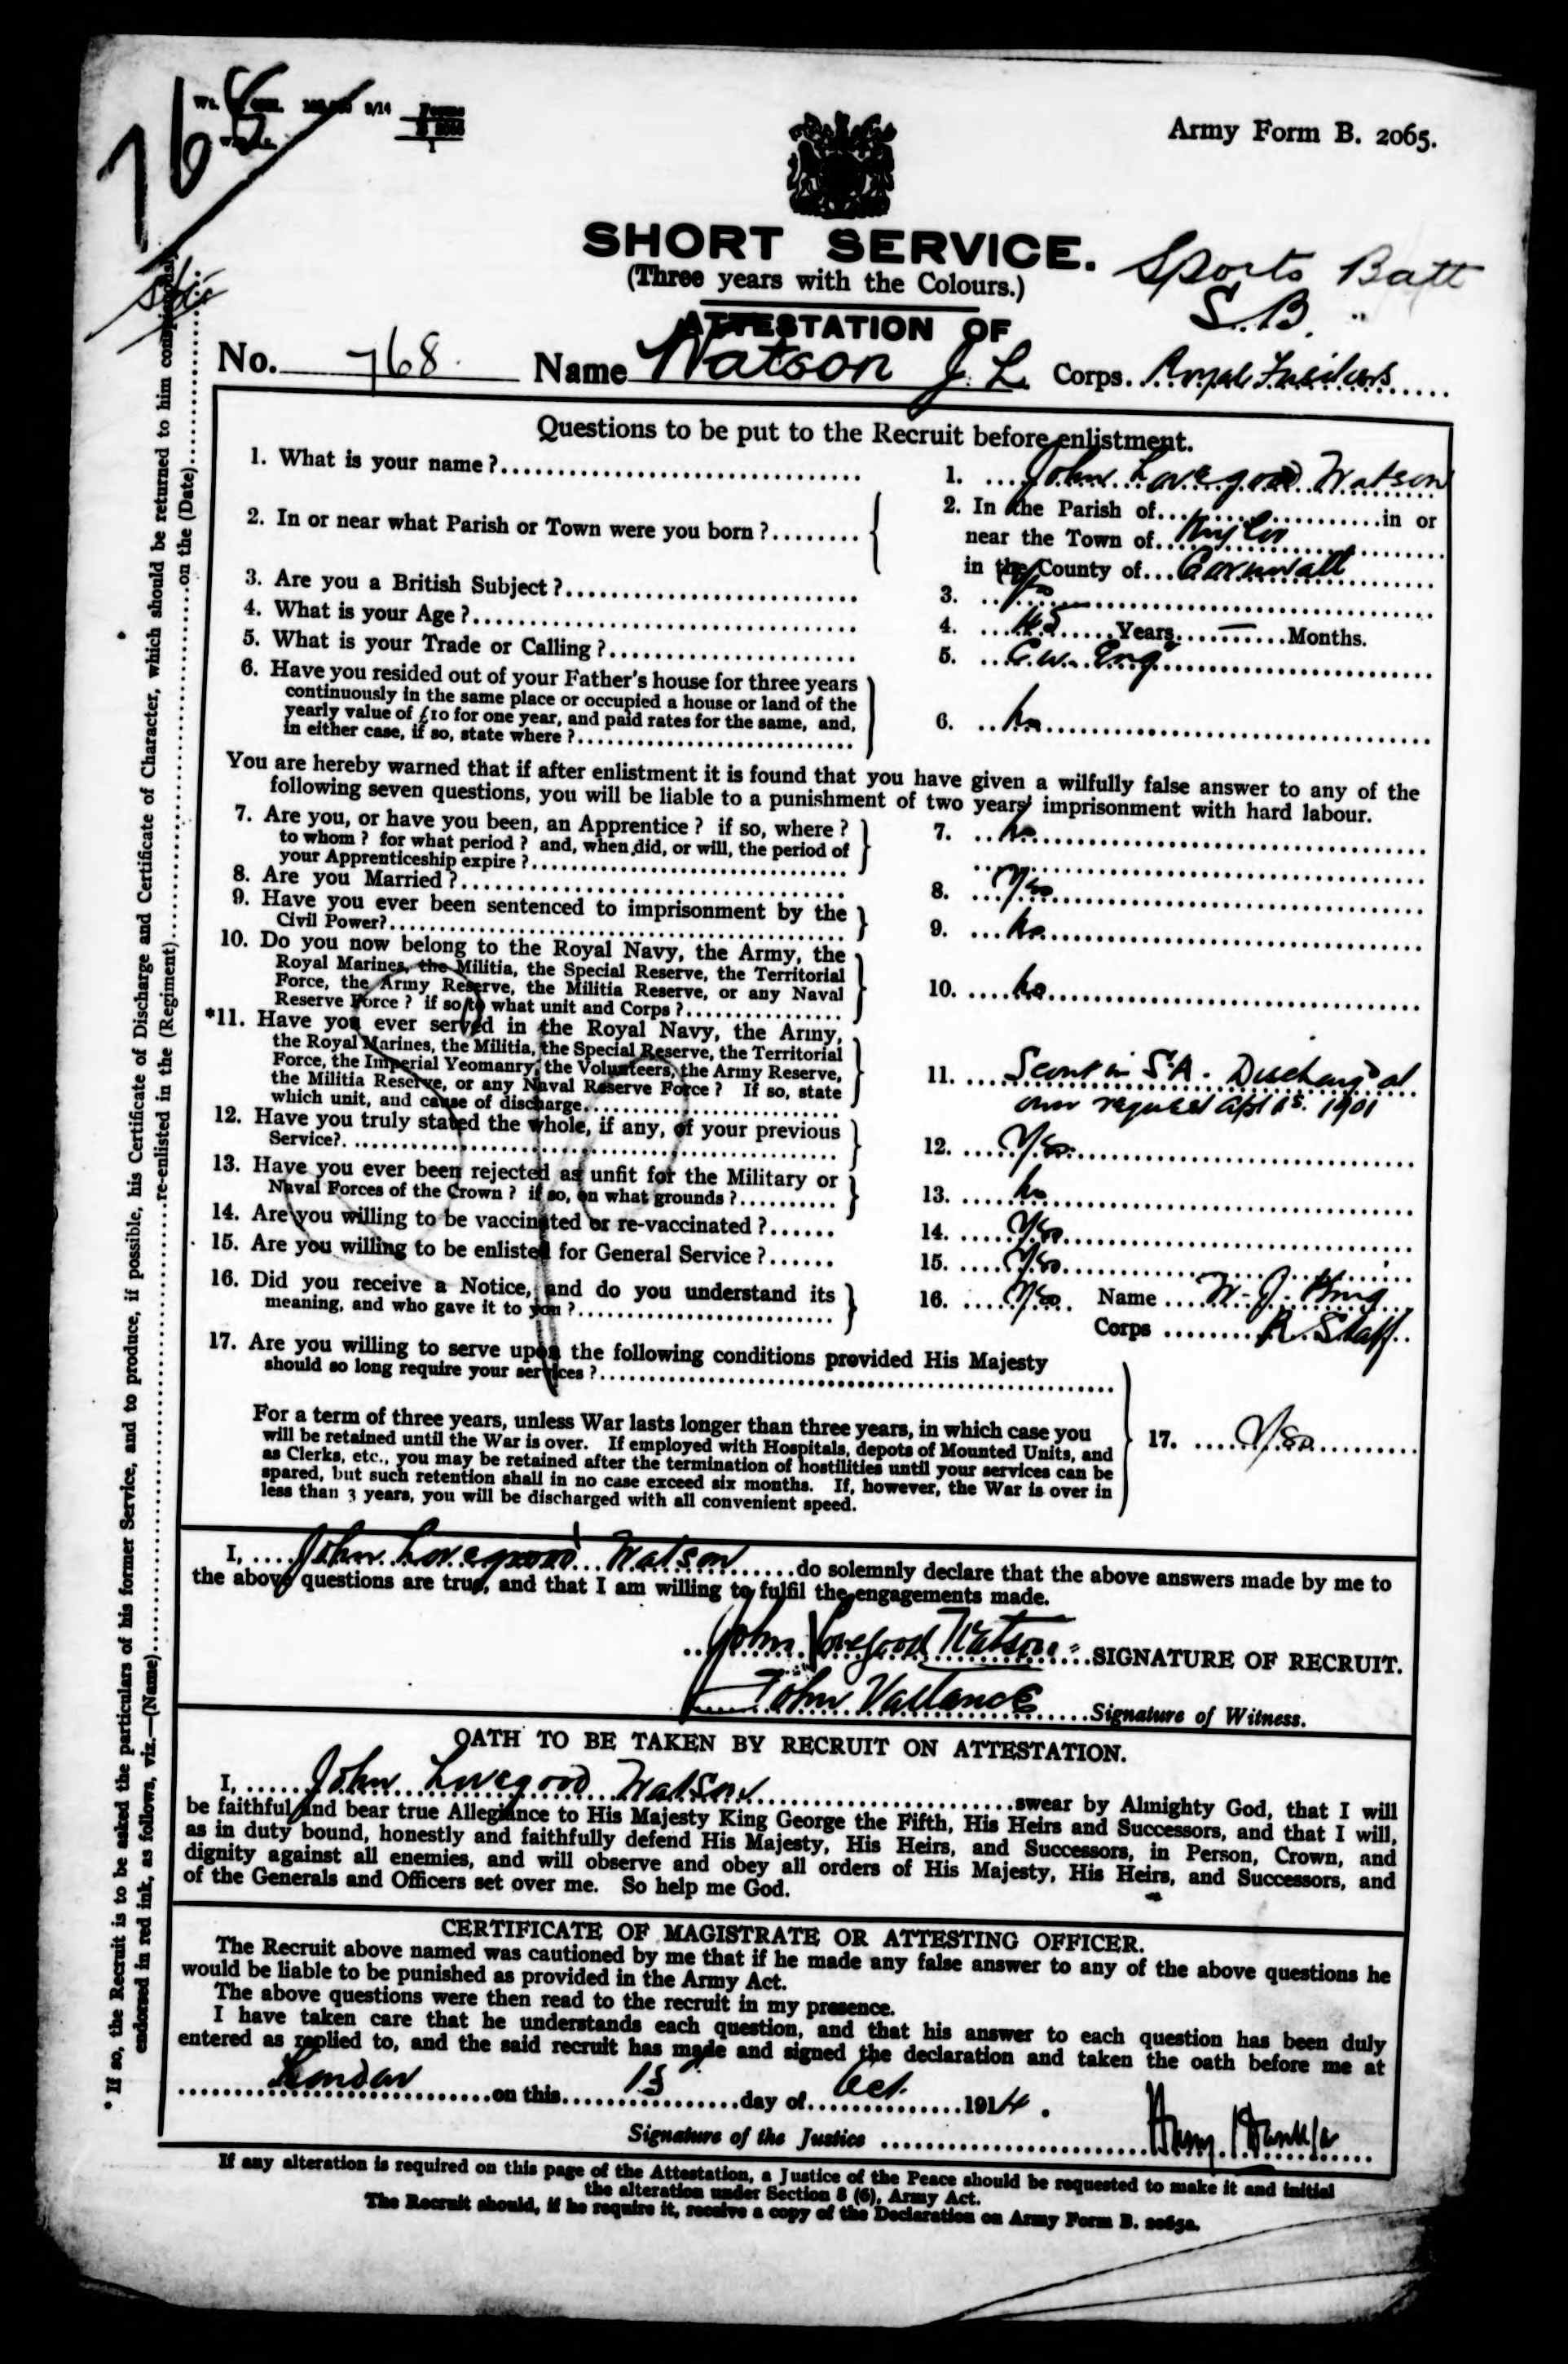 768
9/14
Army Form B. 2065.
SHORT SERVICE.
(Three years with the Colours.)
Sports Batt
S.B. "
ATTESTATION OF
No. 768. Name Watson J. L. Corps. Royal Fusiliers
Questions to be put to the Recruit before enlistment.
1. What is your name?
1. John Lovegood Watson
2. In or near what Parish or Town were you born?
2. In the Parish of in or
near the Town of
in the County of Cornwall
3. Are you a British Subject?
3. Yes
4. What is your Age?
4. 45 Years — Months.
5. What is your Trade or Calling?
5. Eng
6. Have you resided out of your Father's house for three years
continuously in the same place or occupied a house or land of the
yearly value of £10 for one year, and paid rates for the same, and,
in either case, if so, state where?
6. No
You are hereby warned that if after enlistment it is found that you have given a wilfully false answer to any of the
following seven questions, you will be liable to a punishment of two years' imprisonment with hard labour.
7. Are you, or have you been, an Apprentice? if so, where?
to whom? for what period? and, when did, or will, the period of
your Apprenticeship expire?
7. No
8. Are you Married?
8. Yes
9. Have you ever been sentenced to imprisonment by the
Civil Power?
9. No
10. Do you now belong to the Royal Navy, the Army, the
Royal Marines, the Militia, the Special Reserve, the Territorial
Force, the Army Reserve, the Militia Reserve, or any Naval
Reserve Force? if so to what unit and Corps?
10. No
*11. Have you ever served in the Royal Navy, the Army,
the Royal Marines, the Militia, the Special Reserve, the Territorial
Force, the Imperial Yeomanry, the Volunteers, the Army Reserve,
the Militia Reserve, or any Naval Reserve Force? If so, state
which unit, and cause of discharge
11. Scout in S.A. Discharg'd at
own request Apl 1st. 1901
12. Have you truly stated the whole, if any, of your previous
Service?
12. Yes
13. Have you ever been rejected as unfit for the Military or
Naval Forces of the Crown? if so, on what grounds?
13. No
14. Are you willing to be vaccinated or re-vaccinated?
14. Yes
15. Are you willing to be enlisted for General Service?
15. Yes
16. Did you receive a Notice, and do you understand its
meaning, and who gave it to you?
16. Yes Name W. J. King
Corps R. Staff.
17. Are you willing to serve upon the following conditions provided His Majesty
should so long require your services?
For a term of three years, unless War lasts longer than three years, in which case you
will be retained until the War is over. If employed with Hospitals, depots of Mounted Units, and
as Clerks, etc., you may be retained after the termination of hostilities until your services can be
spared, but such retention shall in no case exceed six months. If, however, the War is over in
less than 3 years, you will be discharged with all convenient speed.
17. Yes
I, John Lovegood Watson do solemnly declare that the above answers made by me to
the above questions are true, and that I am willing to fulfil the engagements made.
John Lovegood Watson SIGNATURE OF RECRUIT.
John Vallance Signature of Witness.
OATH TO BE TAKEN BY RECRUIT ON ATTESTATION.
I, John Lovegood Watson swear by Almighty God, that I will
be faithful and bear true Allegiance to His Majesty King George the Fifth, His Heirs and Successors, and that I will,
as in duty bound, honestly and faithfully defend His Majesty, His Heirs, and Successors, in Person, Crown, and
dignity against all enemies, and will observe and obey all orders of His Majesty, His Heirs, and Successors, and
of the Generals and Officers set over me. So help me God.
CERTIFICATE OF MAGISTRATE OR ATTESTING OFFICER.
The Recruit above named was cautioned by me that if he made any false answer to any of the above questions he
would be liable to be punished as provided in the Army Act.
The above questions were then read to the recruit in my presence.
I have taken care that he understands each question, and that his answer to each question has been duly
entered as replied to, and the said recruit has made and signed the declaration and taken the oath before me at
London on this 13 day of Oct. 1914.
Signature of the Justice
If any alteration is required on this page of the Attestation, a Justice of the Peace should be requested to make it and initial
the alteration under Section 8 (6), Army Act.
The Recruit should, if he require it, receive a copy of the Declaration on Army Form B. 2065a.
* If so, the Recruit is to be asked the particulars of his former Service, and to produce, if possible, his Certificate of Discharge and Certificate of Character, which should be returned to him conspicuously
endorsed in red ink, as follows, viz.—(Name) re-enlisted in the (Regiment) on the (Date)